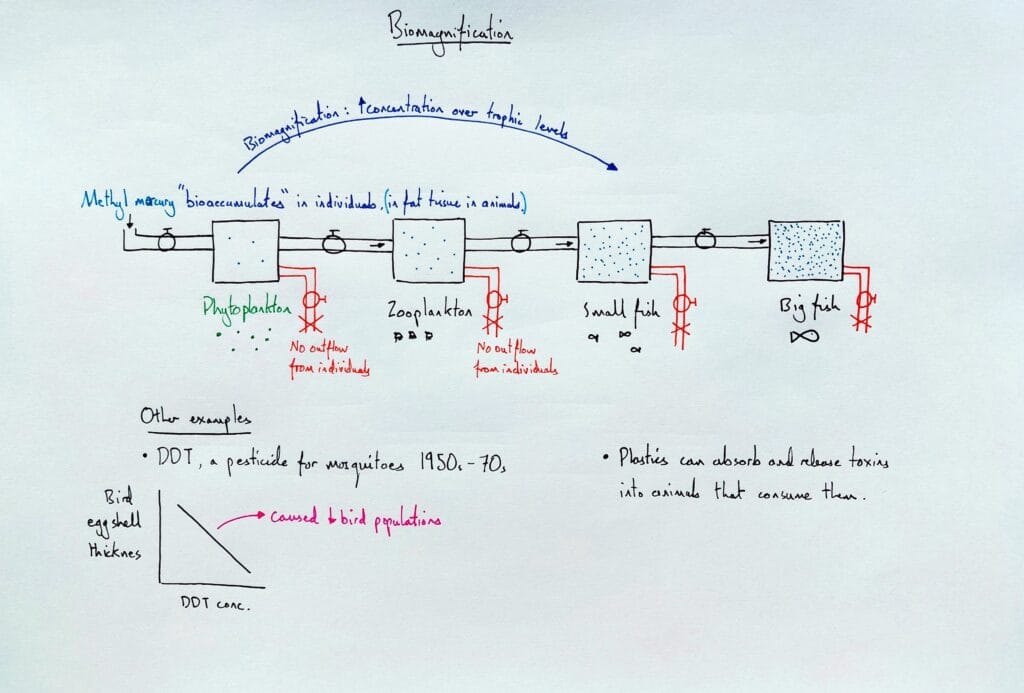 Biomagnification
Biomagnification: ↑concentration over trophic levels
Methyl mercury "bioaccumulates" in individuals. (in fat tissue in animals)
Phytoplankton
Zooplankton
Small fish
Big fish
No outflow
from individuals
No outflow
from individuals
Other examples
• DDT, a pesticide for mosquitoes 1950s-70s
Bird
egg shell
thicknes
caused ↓ bird populations
DDT conc.
• Plastics can absorb and release toxins
into animals that consume them.